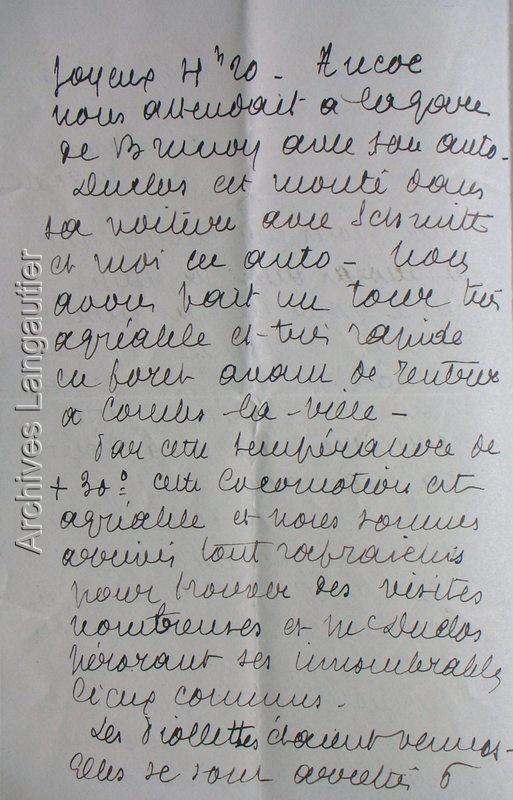 Joyeux 4h20 - Aucoc
nous attendait à la gare
de Brunoy avec son auto.
Duclos est monté dans
sa voiture avec Schmitt
et moi en auto - Nous
avons fait un tour très
agréable et très rapide
en foret avant de rentrer
à Combs-la-ville -
Par cette température de
+ 30° cette locomotion est
agréable et nous sommes
arrivés tout rafraichis
pour trouver des visites
nombreuses et Me Duclos
pérorant ses innombrables
lieux communs.
Les Piollettes étaient venues -
Elles se sont arretées 5
Archives Langautier